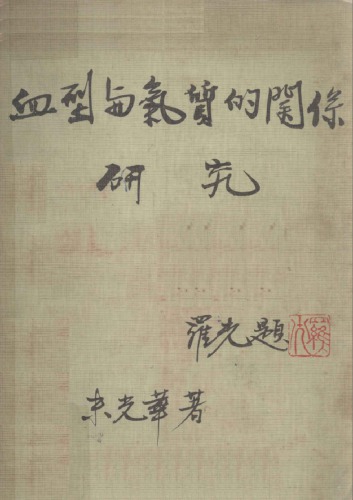 血型与氣質的関係
研究
羅光題
朱光華著